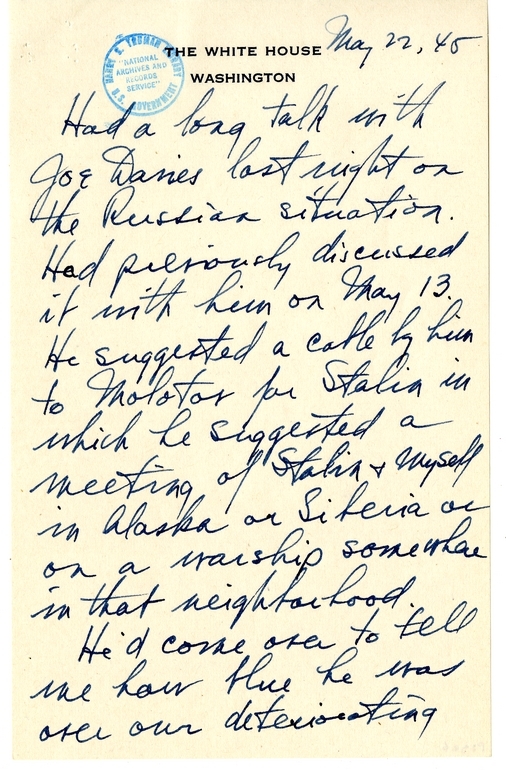 THE WHITE HOUSE
WASHINGTON
May 22, 45
HARRY S. TRUMAN LIBRARY
"NATIONAL
ARCHIVES AND
RECORDS
SERVICE"
U.S. GOVERNMENT
Had a long talk with
Joe Davies last night on
the Russian situation.
Had previously discussed
it with him on May 13.
He suggested a cable by him
to Molotov for Stalin in
which he suggested a
meeting of Stalin & myself
in Alaska or Siberia or
on a warship somewhere
in that neighborhood.
He'd come over to tell
me how blue he was
over our deteriorating